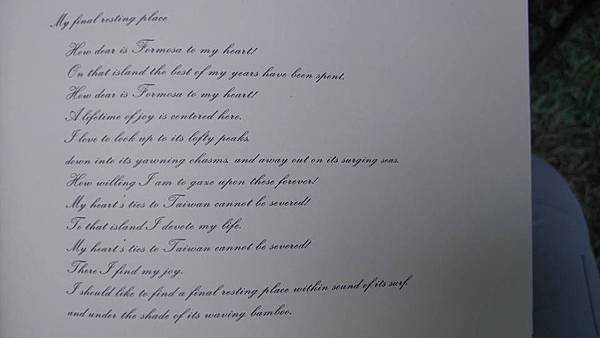 My final resting place
How dear is Formosa to my heart!
On that island the best of my years have been spent.
How dear is Formosa to my heart!
A lifetime of joy is centered here.
I love to look up to its lofty peaks,
down into its yawning chasms, and away out on its surging seas.
How willing I am to gaze upon these forever!
My heart's ties to Taiwan cannot be severed!
To that island I devote my life.
My heart's ties to Taiwan cannot be severed!
There I find my joy.
I should like to find a final resting place within sound of its surf,
and under the shade of its waving bamboo.